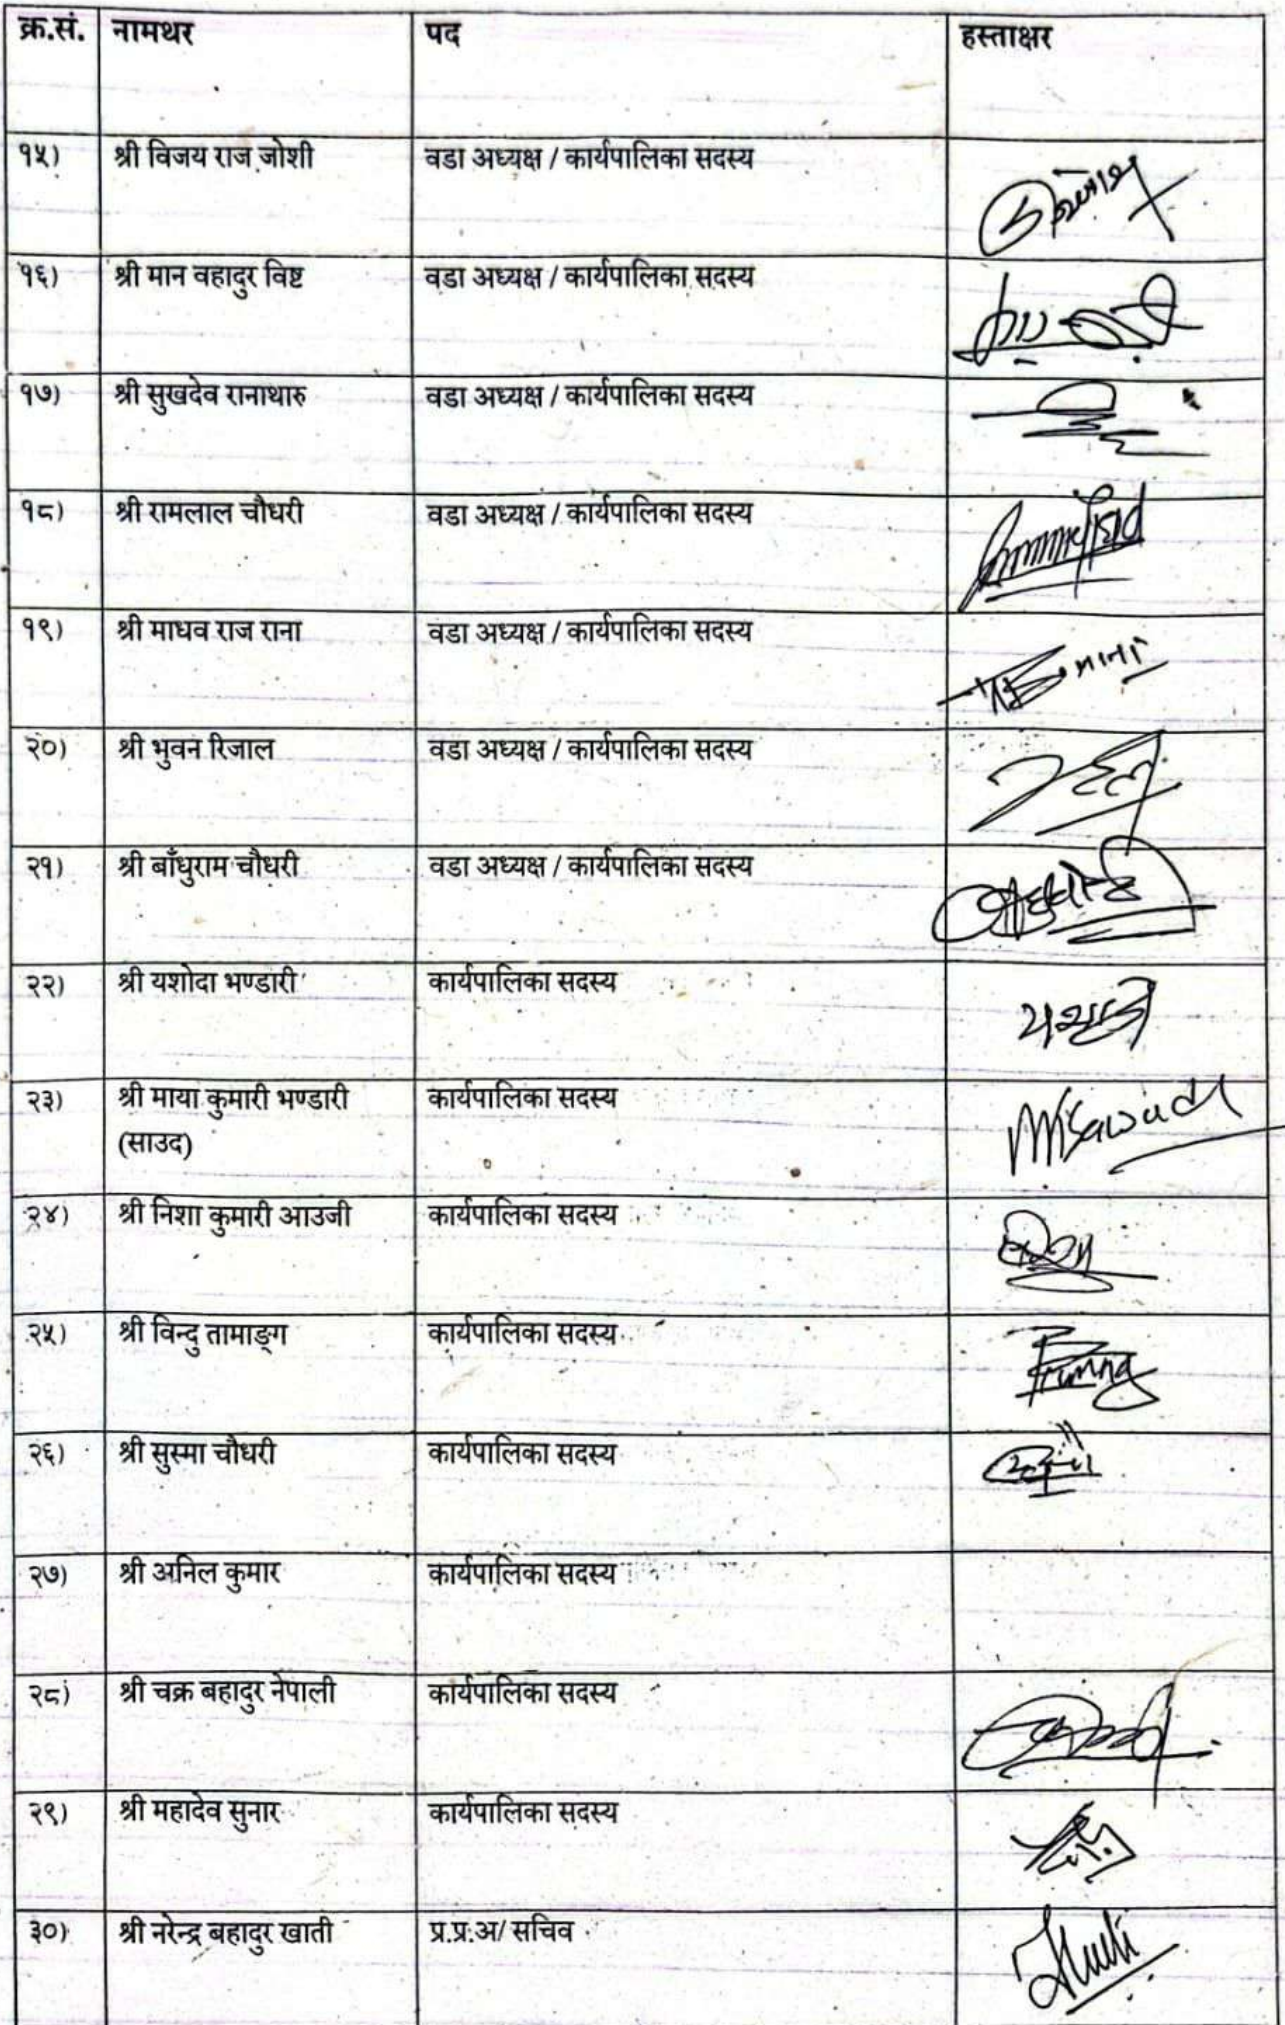 क्र.सं. नामथर पद हस्ताक्षर
१५) श्री विजय राज जोशी वडा अध्यक्ष / कार्यपालिका सदस्य
१६) श्री मान वहादुर विष्ट वडा अध्यक्ष / कार्यपालिका सदस्य
१७) श्री सुखदेव रानाथारु वडा अध्यक्ष / कार्यपालिका सदस्य
१८) श्री रामलाल चौधरी वडा अध्यक्ष / कार्यपालिका सदस्य
१९) श्री माधव राज राना वडा अध्यक्ष / कार्यपालिका सदस्य
२०) श्री भुवन रिजाल वडा अध्यक्ष / कार्यपालिका सदस्य
२१) श्री बाँधुराम चौधरी वडा अध्यक्ष / कार्यपालिका सदस्य
२२) श्री यशोदा भण्डारी कार्यपालिका सदस्य
२३) श्री माया कुमारी भण्डारी कार्यपालिका सदस्य
(साउद)
२४) श्री निशा कुमारी आउजी कार्यपालिका सदस्य
२५) श्री विन्दु तामाङ्ग कार्यपालिका सदस्य
२६) श्री सुस्मा चौधरी कार्यपालिका सदस्य
२७) श्री अनिल कुमार कार्यपालिका सदस्य
२८) श्री चक्र बहादुर नेपाली कार्यपालिका सदस्य
२९) श्री महादेव सुनार कार्यपालिका सदस्य
३०) श्री नरेन्द्र बहादुर खाती प्र.प्र.अ/ सचिव